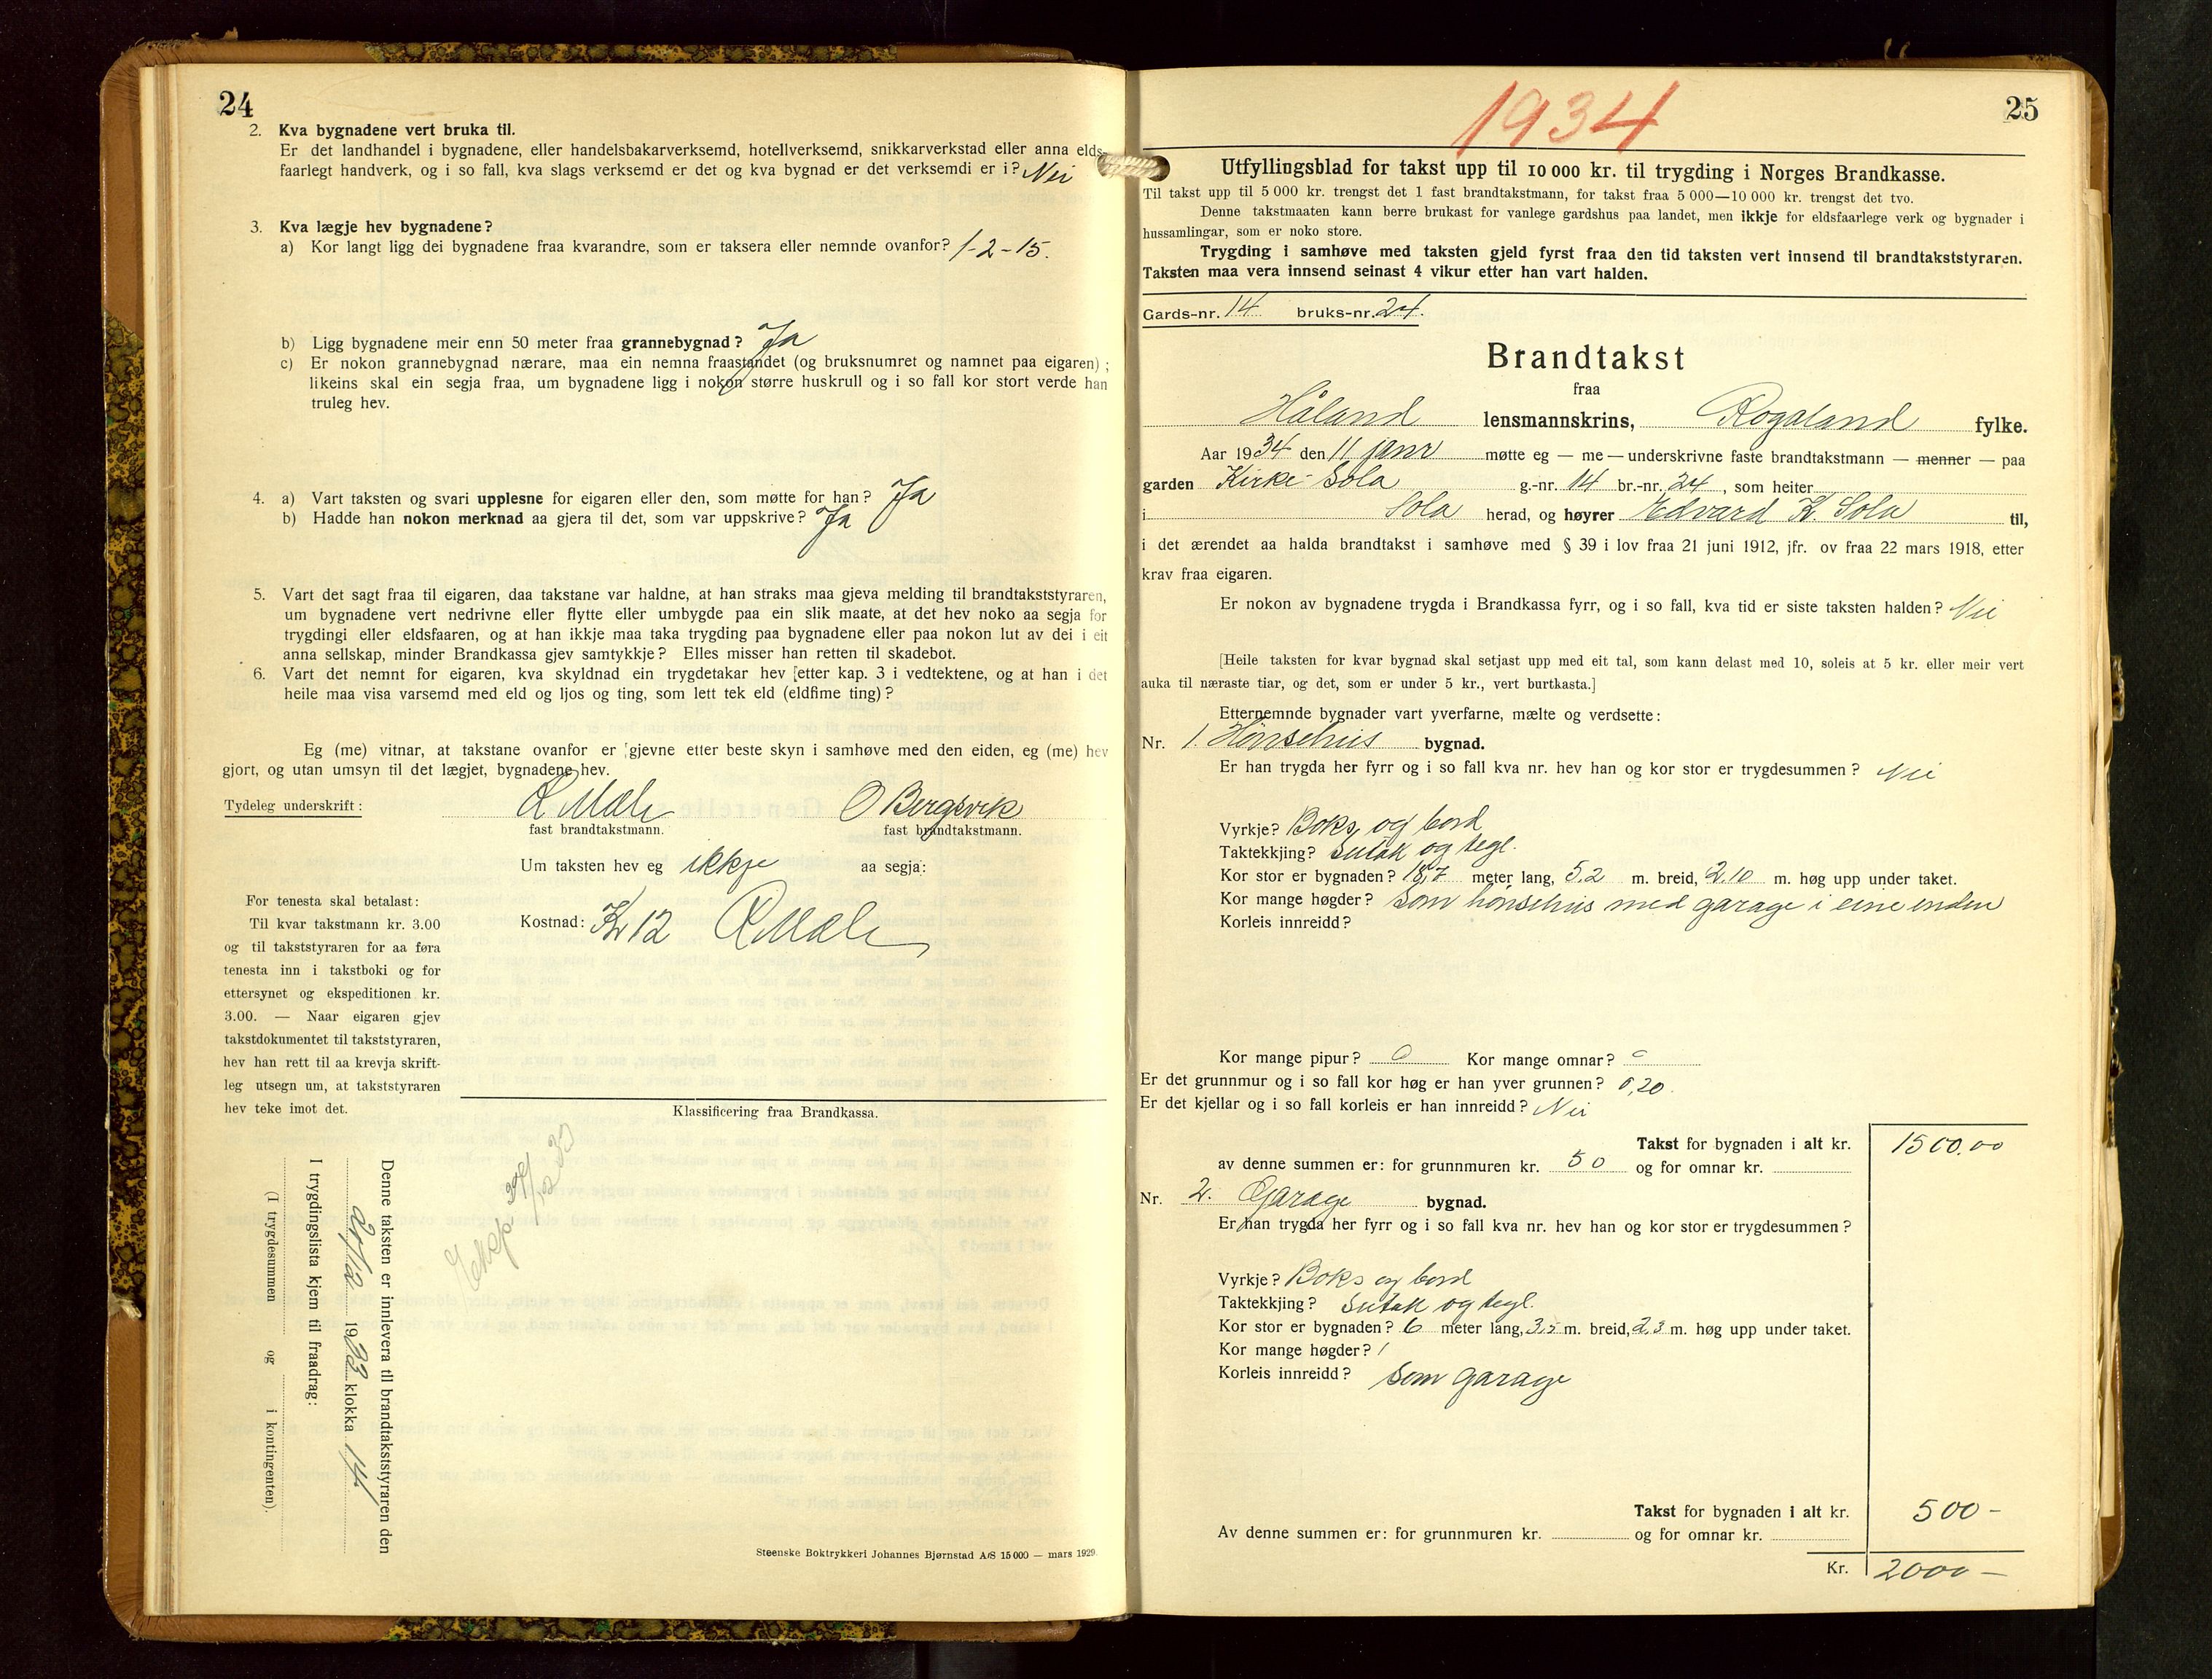 24
2. Kva bygnadene vert bruka til.
Er det landhandel i bygnadene, eller handelsbakarverksemd, hotellverksemd, snikkarverkstad eller anna elds-
faarlegt handverk, og i so fall, kva slags verksemd er det og kva bygnad er det verksemdi er i? Nei
3. Kva lægje hev bygnadene?
a) Kor langt ligg dei bygnadene fraa kvarandre, som er taksera eller nemnde ovanfor? 1-2-15.
b) Ligg bygnadene meir enn 50 meter fraa grannebygnad? Ja
c) Er nokon grannebygnad nærare, maa ein nemna fraastandet (og bruksnumret og namnet paa eigaren);
likeins skal ein segja fraa, um bygnadene ligg i nokon større huskrull og i so fall kor stort verde han
truleg hev.
4. a) Vart taksten og svari upplesne for eigaren eller den, som møtte for han? Ja
b) Hadde han nokon merknad aa gjera til det, som var uppskrive? Ja
5. Vart det sagt fraa til eigaren, daa takstane var haldne, at han straks maa gjeva melding til brandtakststyraren,
um bygnadene vert nedrivne eller flytte eller umbygde paa ein slik maate, at det hev noko aa segja for
trygdingi eller eldsfaaren, og at han ikkje maa taka trygding paa bygnadene eller paa nokon lut av dei i eit
anna sellskap, minder Brandkassa gjev samtykkje? Elles misser han retten til skadebot.
6. Vart det nemnt for eigaren, kva skyldnad ein trygdetakar hev [etter kap. 3 i vedtektene, og at han i det
heile maa visa varsemd med eld og ljos og ting, som lett tek eld (eldfime ting)?
Eg (me) vitnar, at takstane ovanfor er gjevne etter beste skyn i samhøve med den eiden, eg (me) hev
gjort, og utan umsyn til det lægjet, bygnadene hev.
Tydeleg underskrift: O Bergsvik
fast brandtakstmann. fast brandtakstmann.
Um taksten hev eg ikkje aa segja:
Kostnad: Kr 12
For tenesta skal betalast:
Til kvar takstmann kr. 3.00
og til takststyraren for aa føra
tenesta inn i takstboki og for
ettersynet og ekspeditionen kr.
3.00. — Naar eigaren gjev
takstdokumentet til takststyraren,
hev han rett til aa krevja skrift-
leg utsegn um, at takststyraren
hev teke imot det.
Klassificering fraa Brandkassa.
Denne taksten er innlevera til brandtakststyraren den
20/12 1933 klokka 14
I trygdingslista kjem til fraadrag:
(I trygdesummen og i kontingenten).
Steenske Boktrykkeri Johannes Bjørnstad A/S 15 000 — mars 1929.
1934
25
Utfyllingsblad for takst upp til 10 000 kr. til trygding i Norges Brandkasse.
Til takst upp til 5 000 kr. trengst det 1 fast brandtakstmann, for takst fraa 5 000—10 000 kr. trengst det tvo.
Denne takstmaaten kann berre brukast for vanlege gardshus paa landet, men ikkje for eldsfaarlege verk og bygnader i
hussamlingar, som er noko store.
Trygding i samhøve med taksten gjeld fyrst fraa den tid taksten vert innsend til brandtakststyraren.
Taksten maa vera innsend seinast 4 vikur etter han vart halden.
Gards-nr. 14 bruks-nr. 24.
Brandtakst
fraa
Håland lensmannskrins, Rogaland fylke.
Aar 1934 den 11 janr møtte eg — me — underskrivne faste brandtakstmann — menner — paa
garden Kirke-Sola g.-nr. 14 br.-nr. 24, som heiter
i Sola herad, og høyrer Edvard K. Sola til,
i det ærendet aa halda brandtakst i samhøve med § 39 i lov fraa 21 juni 1912, jfr. ov fraa 22 mars 1918, etter
krav fraa eigaren.
Er nokon av bygnadene trygda i Brandkassa fyrr, og i so fall, kva tid er siste taksten halden? Nei
[Heile taksten for kvar bygnad skal setjast upp med eit tal, som kann delast med 10, soleis at 5 kr. eller meir vert
auka til næraste tiar, og det, som er under 5 kr., vert burtkasta.]
Etternemnde bygnader vart yverfarne, mælte og verdsette:
Nr. 1. Hønsehus bygnad.
Er han trygda her fyrr og i so fall kva nr. hev han og kor stor er trygdesummen? Nei
Vyrkje? Boks og bord
Taktekkjing? Sutak og tegl.
Kor stor er bygnaden? 18,7 meter lang, 5.2 m. breid, 2.10 m. høg upp under taket.
Kor mange høgder? Som hønsehus med garage i eine enden
Korleis innreidd?
Kor mange pipur? 0 Kor mange omnar? 0
Er det grunnmur og i so fall kor høg er han yver grunnen? 0,20
Er det kjellar og i so fall korleis er han innreidd? Nei
Takst for bygnaden i alt kr. 1500.00
av denne summen er: for grunnmuren kr. 50 og for omnar kr.
Nr. 2. Garage bygnad.
Er han trygda her fyrr og i so fall kva nr. hev han og kor stor er trygdesummen?
Vyrkje? Boks og bord
Taktekkjing? Sutak og tegl.
Kor stor er bygnaden? 6 meter lang, 3.5 m. breid, 2.3 m. høg upp under taket.
Kor mange høgder? 1
Korleis innreidd? Som garage
Takst for bygnaden i alt kr. 500-
Av denne summen er: for grunnmuren kr. og for omnar kr.
Kr. 2000-